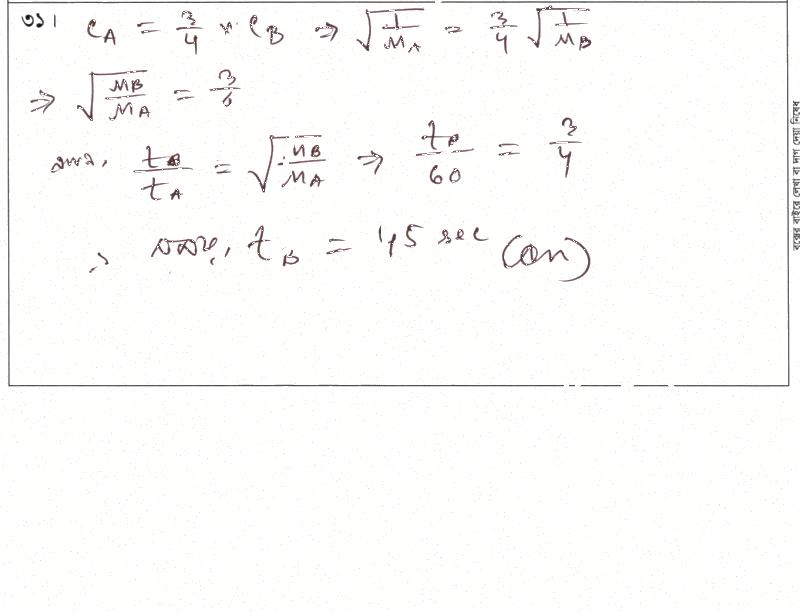 ৩১। C_A = 3/4 × C_B ⇒ √(1/M_A) = 3/4 √(1/M_B)
⇒ √(M_B/M_A) = 3/4
আবার, t_B/t_A = √(M_B/M_A) ⇒ t_B/60 = 3/4
∴ সময়, t_B = 45 sec (Ans)
বক্সের বাইরে লেখা বা দাগ দেয়া নিষেধ